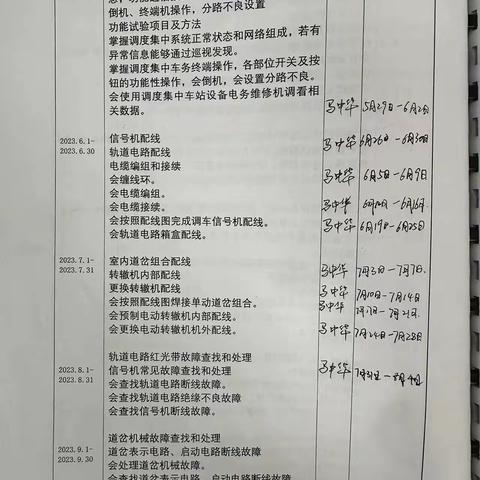 倒机、终端机操作，分路不良设置
功能试验项目及方法
掌握调度集中系统正常状态和网络组成，若有
异常信息能够通过巡视发现。
掌握调度集中车务终端操作，各部位开关及按
钮的功能性操作，会倒机，会设置分路不良。
会使用调度集中车站设备电务维修机调看相
关数据。 马中华 5月29日-6月2日
2023.6.1-
2023.6.30
信号机配线 马中华 6月26日-6月30日
轨道电路配线
电缆编组和接续
会缠线环。 马中华 6月5日-6月9日
会电缆编组。
会电缆接续。 马中华
会按照配线图完成调车信号机配线。 马中华 6月19日-6月25日
会轨道电路箱盒配线。
2023.7.1-
2023.7.31
室内道岔组合配线 马中华 7月3日-7月7日
转辙机内部配线
更换转辙机配线 马中华 7月10日-7月14日
会按照配线图焊接单动道岔组合。 马中华
会预制电动转辙机内部配线。
会更换电动转辙机机外配线。 马中华 7月24日-7月28日
2023.8.1-
2023.8.31
轨道电路红光带故障查找和处理
信号机常见故障查找和处理 马中华 7月31日-8月4日
会查找轨道电路断线故障。
会查找轨道电路绝缘不良故障
会查找信号机断线故障。
2023.9.1-
2023.9.30
道岔机械故障查找和处理
道岔表示电路、启动电路断线故障
会处理道岔机械故障。
会查找道岔表示电路、启动电路断线故障